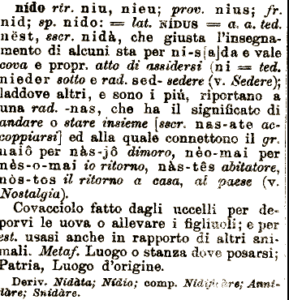 nído rtr. niu, nieu; prov. nius; fr.
nid; sp. nido: = lat. NĪDUS = a. a. ted.
nëst, sscr. nidà, che giusta l'insegna-
mento di alcuni sta per ni-s[a]da e vale
cova e propr. atto di assidersi (ni = ted.
nieder sotto e rad. sed- sedere (v. Sedere);
laddove altri, e sono i più, riportano a
una rad. -nas, che ha il significato di
andare o stare insieme [sscr. nas-ate ac-
coppiarsi] ed alla quale connettono il gr.
naiô per nàs-jô dimoro, nèo-mai per
nès-o-mai io ritorno, nàs-tês abitatore,
nòs-tos il ritorno a casa, al paese (v.
Nostalgia).
Covacciolo fatto dagli uccelli per de-
porvi le uova o allevare i figliuoli; e per
est. usasi anche in rapporto di altri ani-
mali. Metaf. Luogo o stanza dove posarsi;
Patria, Luogo d'origine.
Deriv. Nidàta; Nídio; comp. Nidificàre; Anni-
dàre; Snidàre.